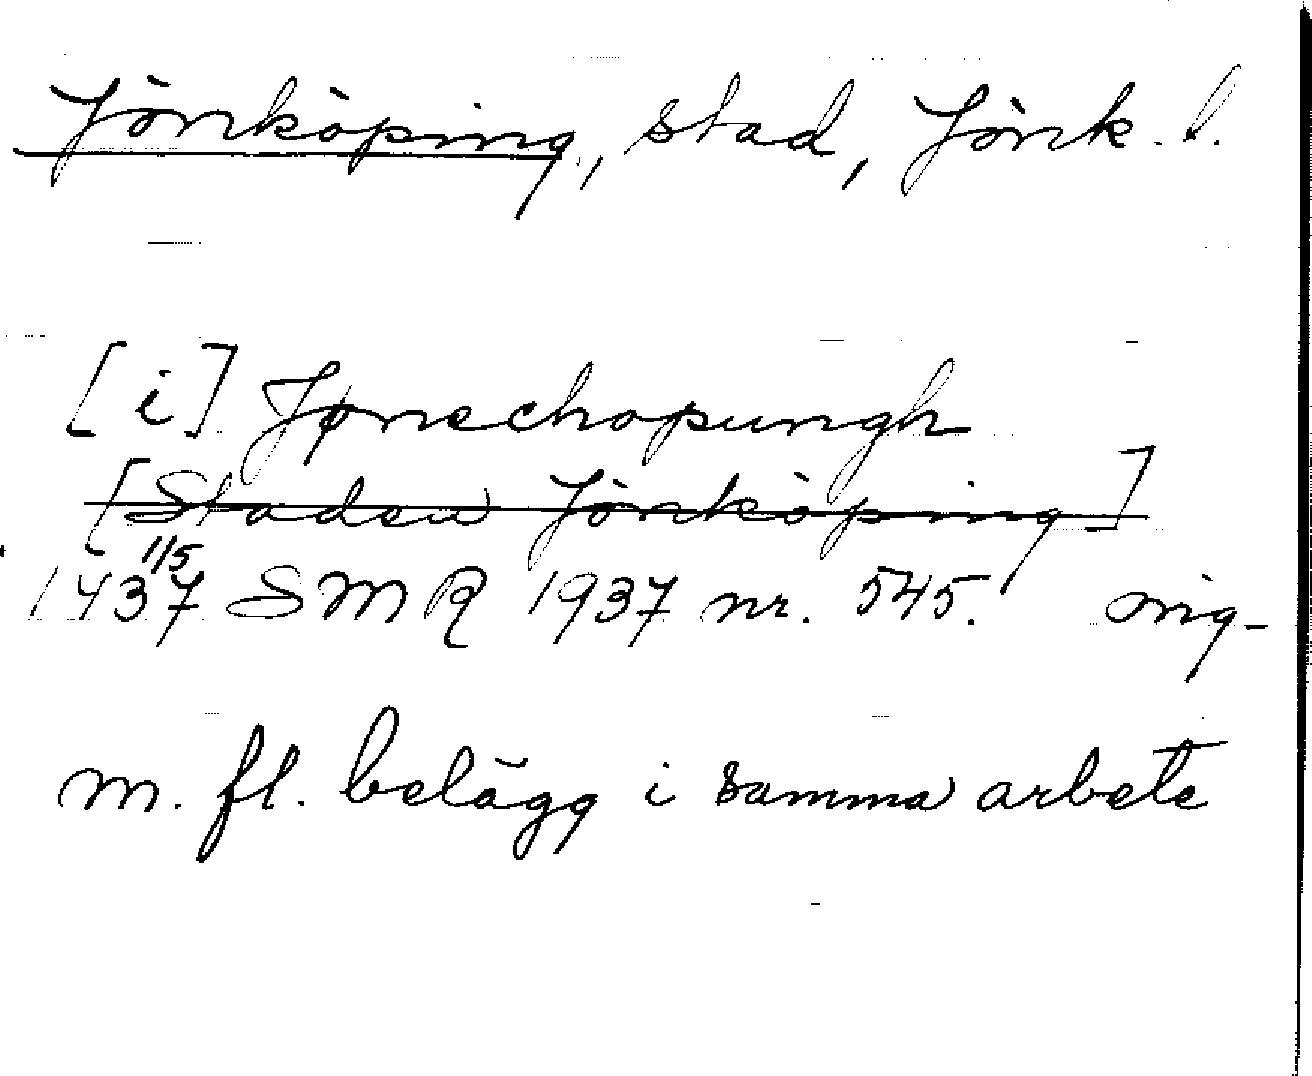 Jönköping, stad, Jönk. l.
[i] Jønechopungh
[Staden Jönköping]
1/5
1437 SMR 1937 nr. 545. orig-
m. fl. belägg i samma arbete